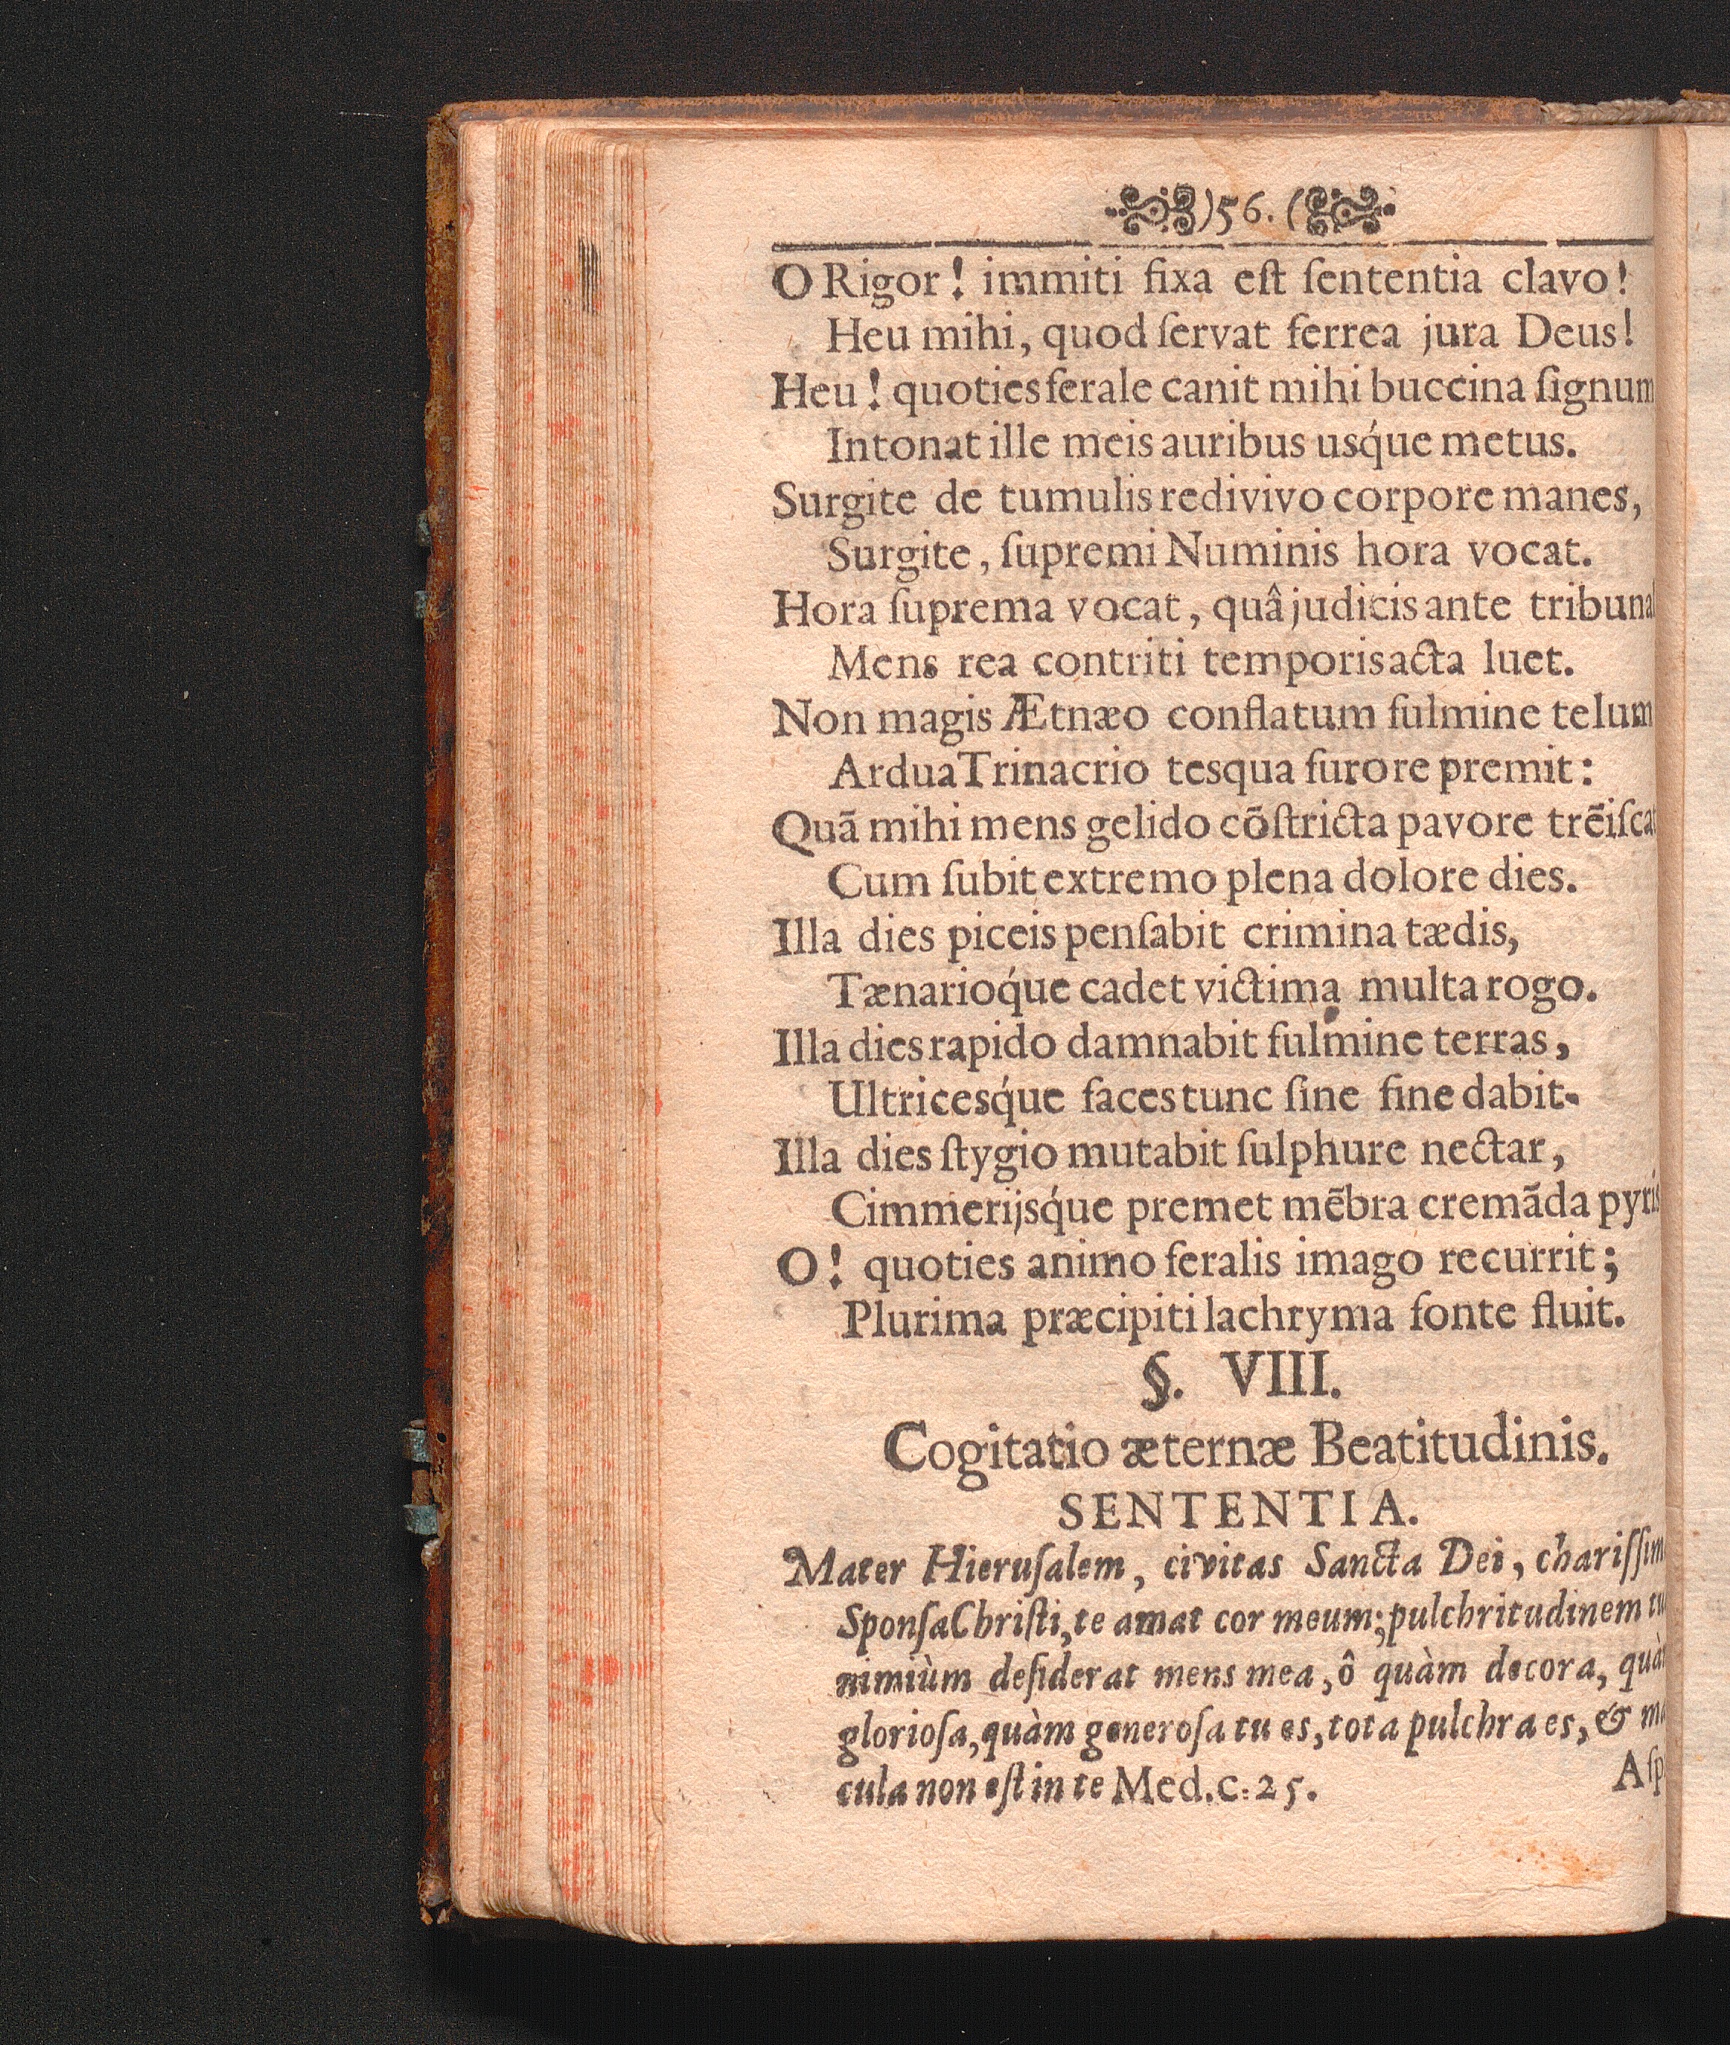 )56.(
O Rigor! immiti fixa eſt ſententia clavo!
Heu mihi, quod ſervat ferrea jura Deus!
Heu! quoties ferale canit mihi buccina ſignum
Intonat ille meis auribus usq́ue metus.
Surgite de tumulis redivivo corpore manes,
Surgite, ſupremi Numinis hora vocat.
Hora ſuprema vocat, quâ judicis ante tribunal
Mens rea contriti temporis acta luet.
Non magis Ætnæo conflatum fulmine telum
Ardua Trinacrio tesqua furore premit:
Quã mihi mens gelido cõſtricta pavore trẽiſcat
Cum ſubit extremo plena dolore dies.
Illa dies piceis penſabit crimina tædis,
Tænarioq́ue cadet victima multa rogo.
Illa dies rapido damnabit fulmine terras,
Ultricesq́ue faces tunc ſine fine dabit.
Illa dies ſtygio mutabit ſulphure nectar,
Cimmerijsq́ue premet mẽbra cremãda pyris
O! quoties animo feralis imago recurrit;
Plurima præcipiti lachryma fonte fluit.
§. VIII.
Cogitatio æternæ Beatitudinis.
SENTENTIA.
Mater Hieruſalem, civitas Sancta Dei, chariſſim
Sponſa Chriſti, te amat cor meum; pulchritudinem tu
nimiùm deſiderat mens mea, ô quàm decora, quàm
glorioſa, quàm generoſa tu es, tota pulchra es, & ma
cula non eſt in te Med. C. 25.
Aſp